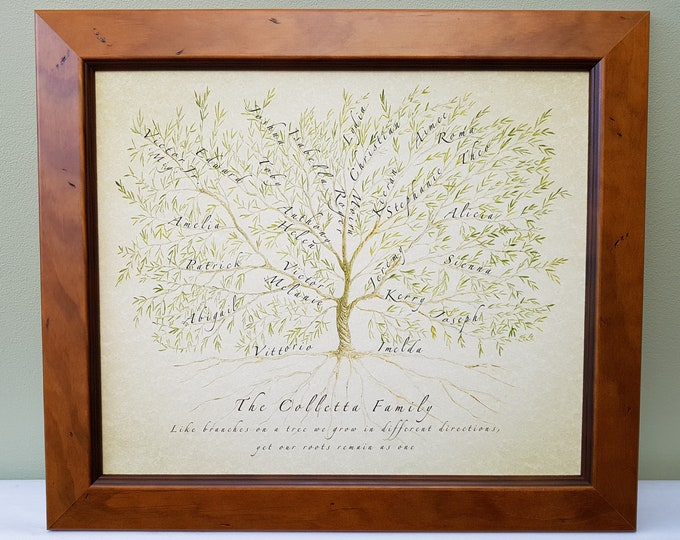 Lydia
Christian
Aimee
Roma
Theo
Joshua
Isabella
Toby
Edward
Victor Jr
Roger
Moira
Kieran
Stephanie
Anthony
Helen
Amelia
Alicia
Patrick
Sienna
Victor
Melanie
Jerome
Kerry
Joseph
Abigail
Vittorio
Imelda
The Colletta Family
Like branches on a tree we grow in different directions,
yet our roots remain as one